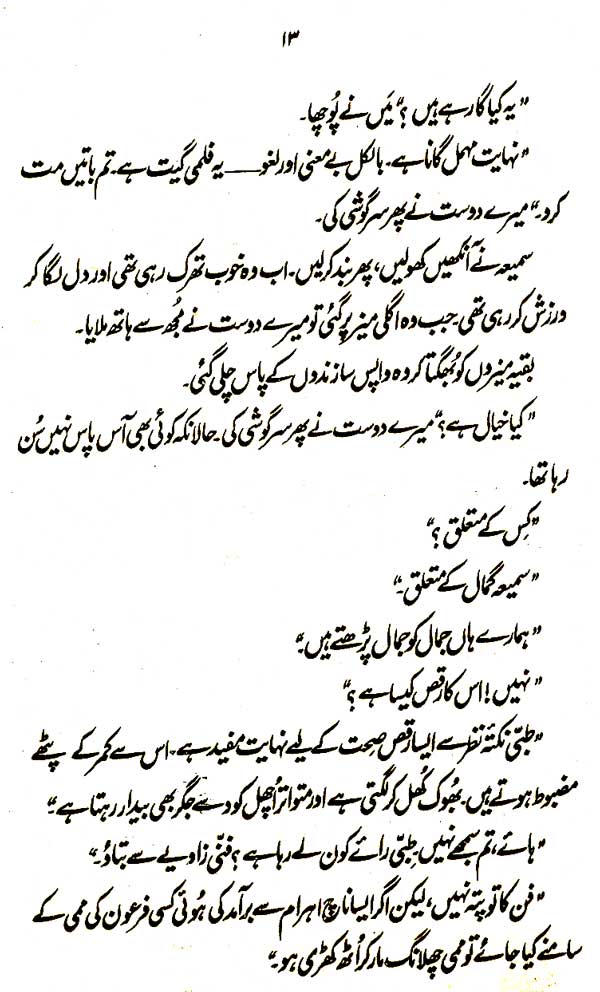 ۱۳
"یہ کیا گا رہے ہیں؟" مَیں نے پُوچھا۔
"نہایت مہمل گانا ہے۔ بالکل بے معنی اور لغو —— یہ فلمی گیت ہے۔ تم باتیں مت
کرو۔" میرے دوست نے پھر سرگوشی کی۔
سمیعہ نے آنکھیں کھولیں، پھر بند کر لیں۔ اب وہ خوب تھرک رہی تھی اور دل لگا کر
ورزش کر رہی تھی۔ جب وہ اگلی میز پر گئی تو میرے دوست نے مُجھ سے ہاتھ ملایا۔
بقیہ میزوں کو بُھگتا کر وہ واپس سازندوں کے پاس چلی گئی۔
"کیا خیال ہے؟" میرے دوست نے پھر سرگوشی کی۔ حالانکہ کوئی بھی آس پاس نہیں سُن
رہا تھا۔
"کِس کے متعلق؟"
"سمیعہ گمال کے متعلق۔"
"ہمارے ہاں جمال کو جمال پڑھتے ہیں۔"
"نہیں! اس کا رقص کیسا ہے؟"
"طبّی نکتۂ نظر سے ایسا رقص صحت کے لیے نہایت مفید ہے۔ اس سے کمر کے پٹھے
مضبوط ہوتے ہیں۔ بھُوک کُھل کر لگتی ہے اور متواتر اُچھل کود سے جگر بھی بیدار رہتا ہے۔"
"ہائے، تم سمجھے نہیں۔ طِبّی رائے کون لے رہا ہے؟ فنّی زاویے سے بتاؤ۔"
"فن کا تو پتہ نہیں، لیکن اگر ایسا ناچ اہرام سے برآمد کی ہُوئی کسی فرعون کی ممی کے
سامنے کیا جائے تو ممی چھلانگ مار کر اُٹھ کھڑی ہو۔"